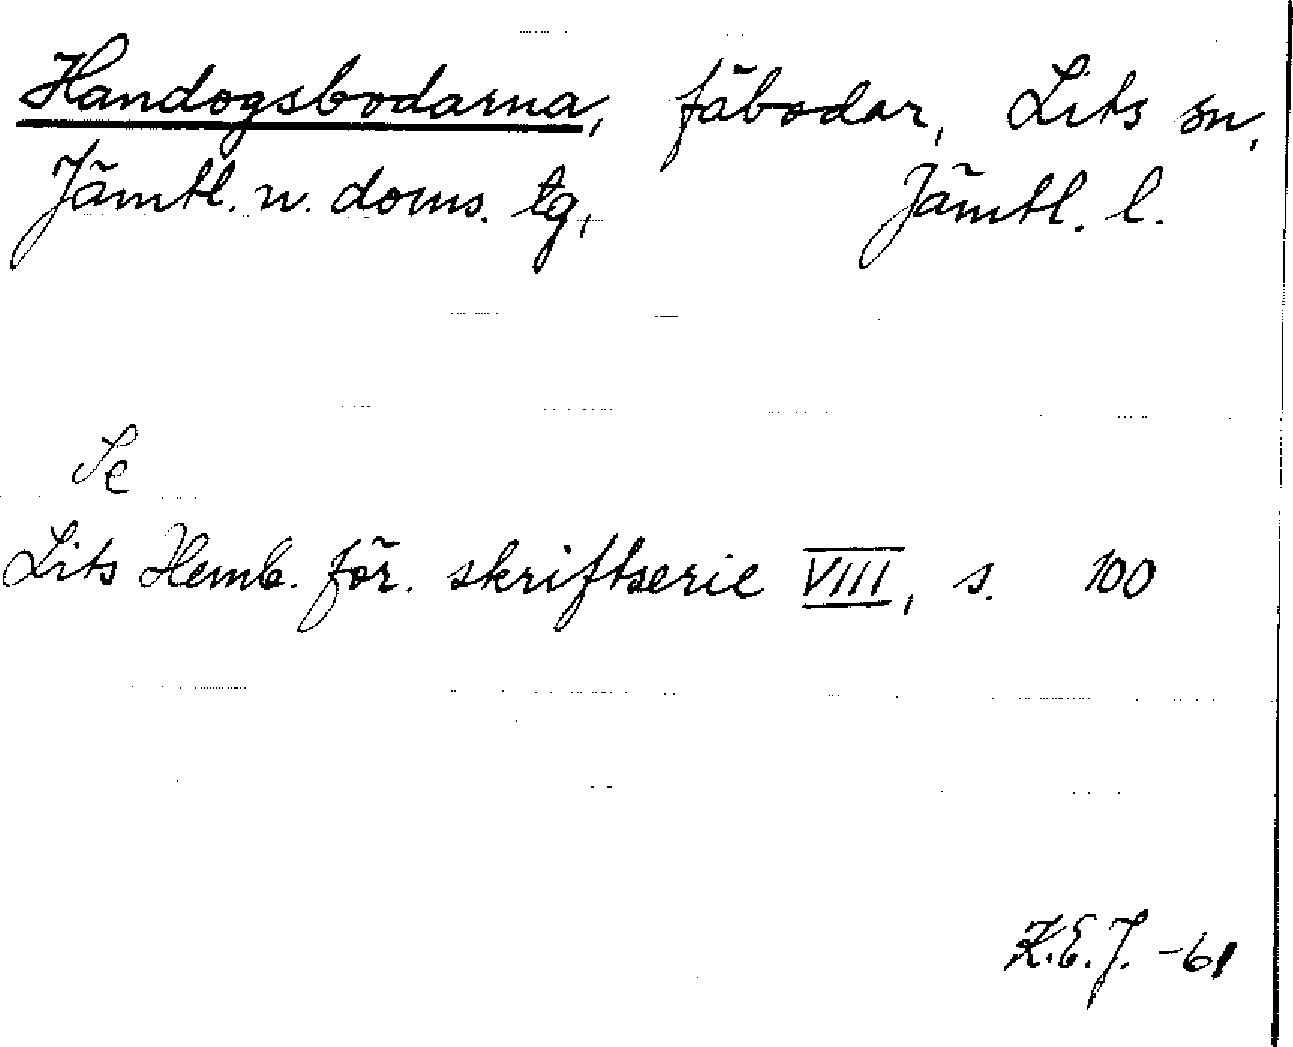 Handogsbodarna, fäbodar, Lits sn,
Jämtl. n. doms. tg, Jämtl. l.
Se
Lits Hemb. för. skriftserie VIII, s. 100
K.E.J. -61